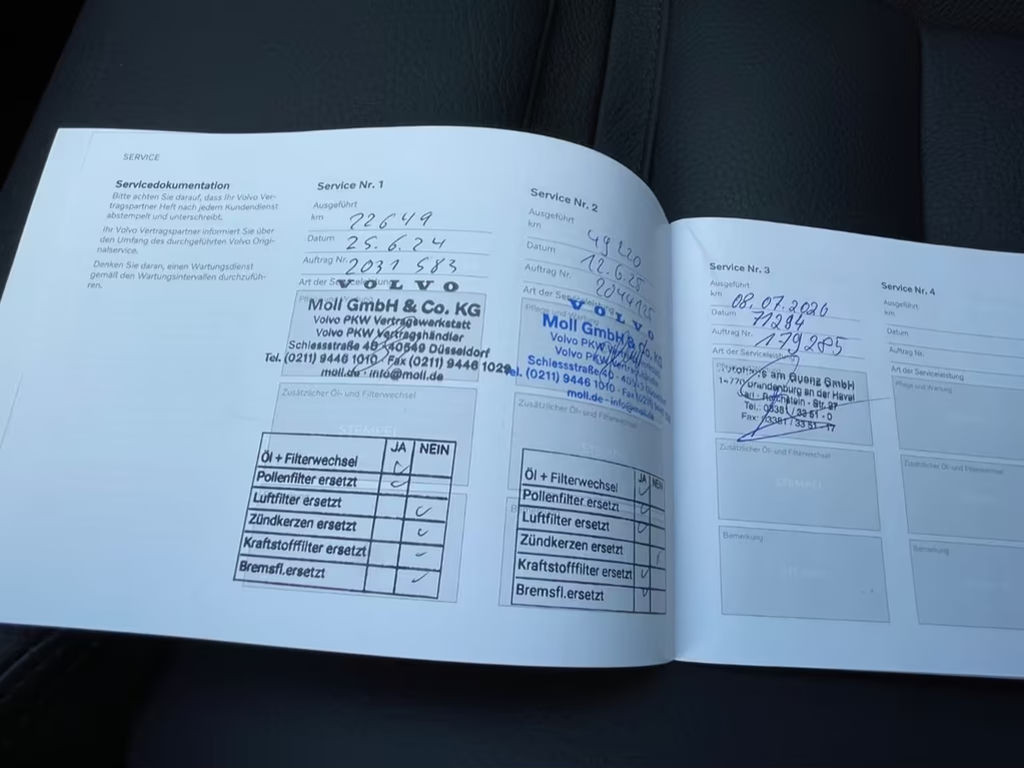 SERVICE
Servicedokumentation
Bitte achten Sie darauf, dass Ihr Volvo Ver-
tragspartner Heft nach jedem Kundendienst
abstempelt und unterschreibt.
Ihr Volvo Vertragspartner informiert Sie über
den Umfang des durchgeführten Volvo Origi-
nalservice.
Denken Sie daran, einen Wartungsdienst
gemäß den Wartungsintervallen durchzufüh-
ren.
Service Nr. 1
Ausgeführt
km 22649
Datum 25.6.24
Auftrag Nr. 2031 583
Art der Serviceleistung
VOLVO
Moll GmbH & Co. KG
Volvo PKW Vertragswerkstatt
Volvo PKW Vertragshändler
Schlessstraße 40 · 40549 Düsseldorf
Tel. (0211) 9446 1010 · Fax (0211) 9446 1029
moll.de · info@moll.de
Zusätzlicher Öl- und Filterwechsel
STEMPEL
JA NEIN
Öl + Filterwechsel
Pollenfilter ersetzt
Luftfilter ersetzt
Zündkerzen ersetzt
Kraftstofffilter ersetzt
Bremsfl.ersetzt
Service Nr. 2
Ausgeführt
km 49220
Datum 12.6.25
Auftrag Nr. 2044125
Art der Serviceleistung
VOLVO
Moll GmbH & Co. KG
Volvo PKW
Volvo PKW
Schlessstraße 40
Tel. (0211) 9446 1010 · Fax (0211)
moll.de · info@moll.de
Zusätzlicher Öl- und Filterwechsel
JA NEIN
Öl + Filterwechsel
Pollenfilter ersetzt
Luftfilter ersetzt
Zündkerzen ersetzt
Kraftstofffilter ersetzt
Bremsfl.ersetzt
Service Nr. 3
Ausgeführt
km 08.07.2026
Datum 71284
Auftrag Nr. 179285
Art der Serviceleistung
Autohaus am Quenz GmbH
14770 Brandenburg an der Havel
Carl - Reichstein - Str. 97
Tel.: 03381 / 33 51 - 0
Fax: 03381 / 33 51 - 17
Zusätzlicher Öl- und Filterwechsel
STEMPEL
Bemerkung
Service Nr. 4
Ausgeführt
km
Datum
Auftrag Nr.
Art der Serviceleistung
Pflege und Wartung
Zusätzlicher Öl- und Filterwechsel
Bemerkung